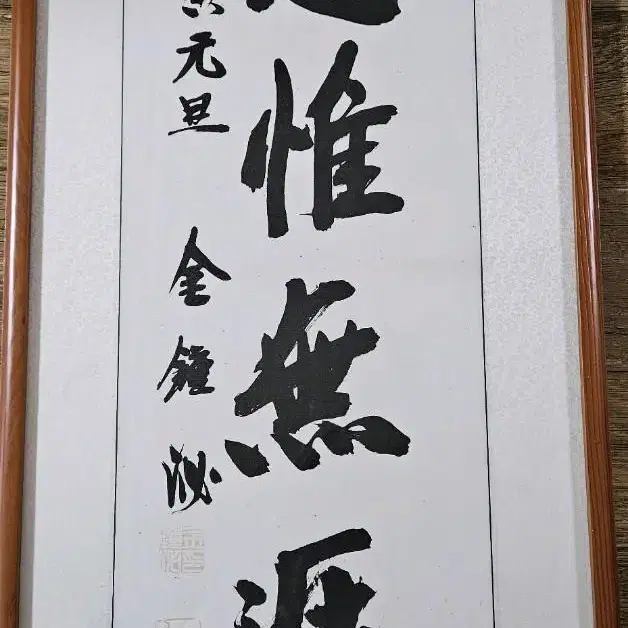 惟無
元旦 金鍾泌